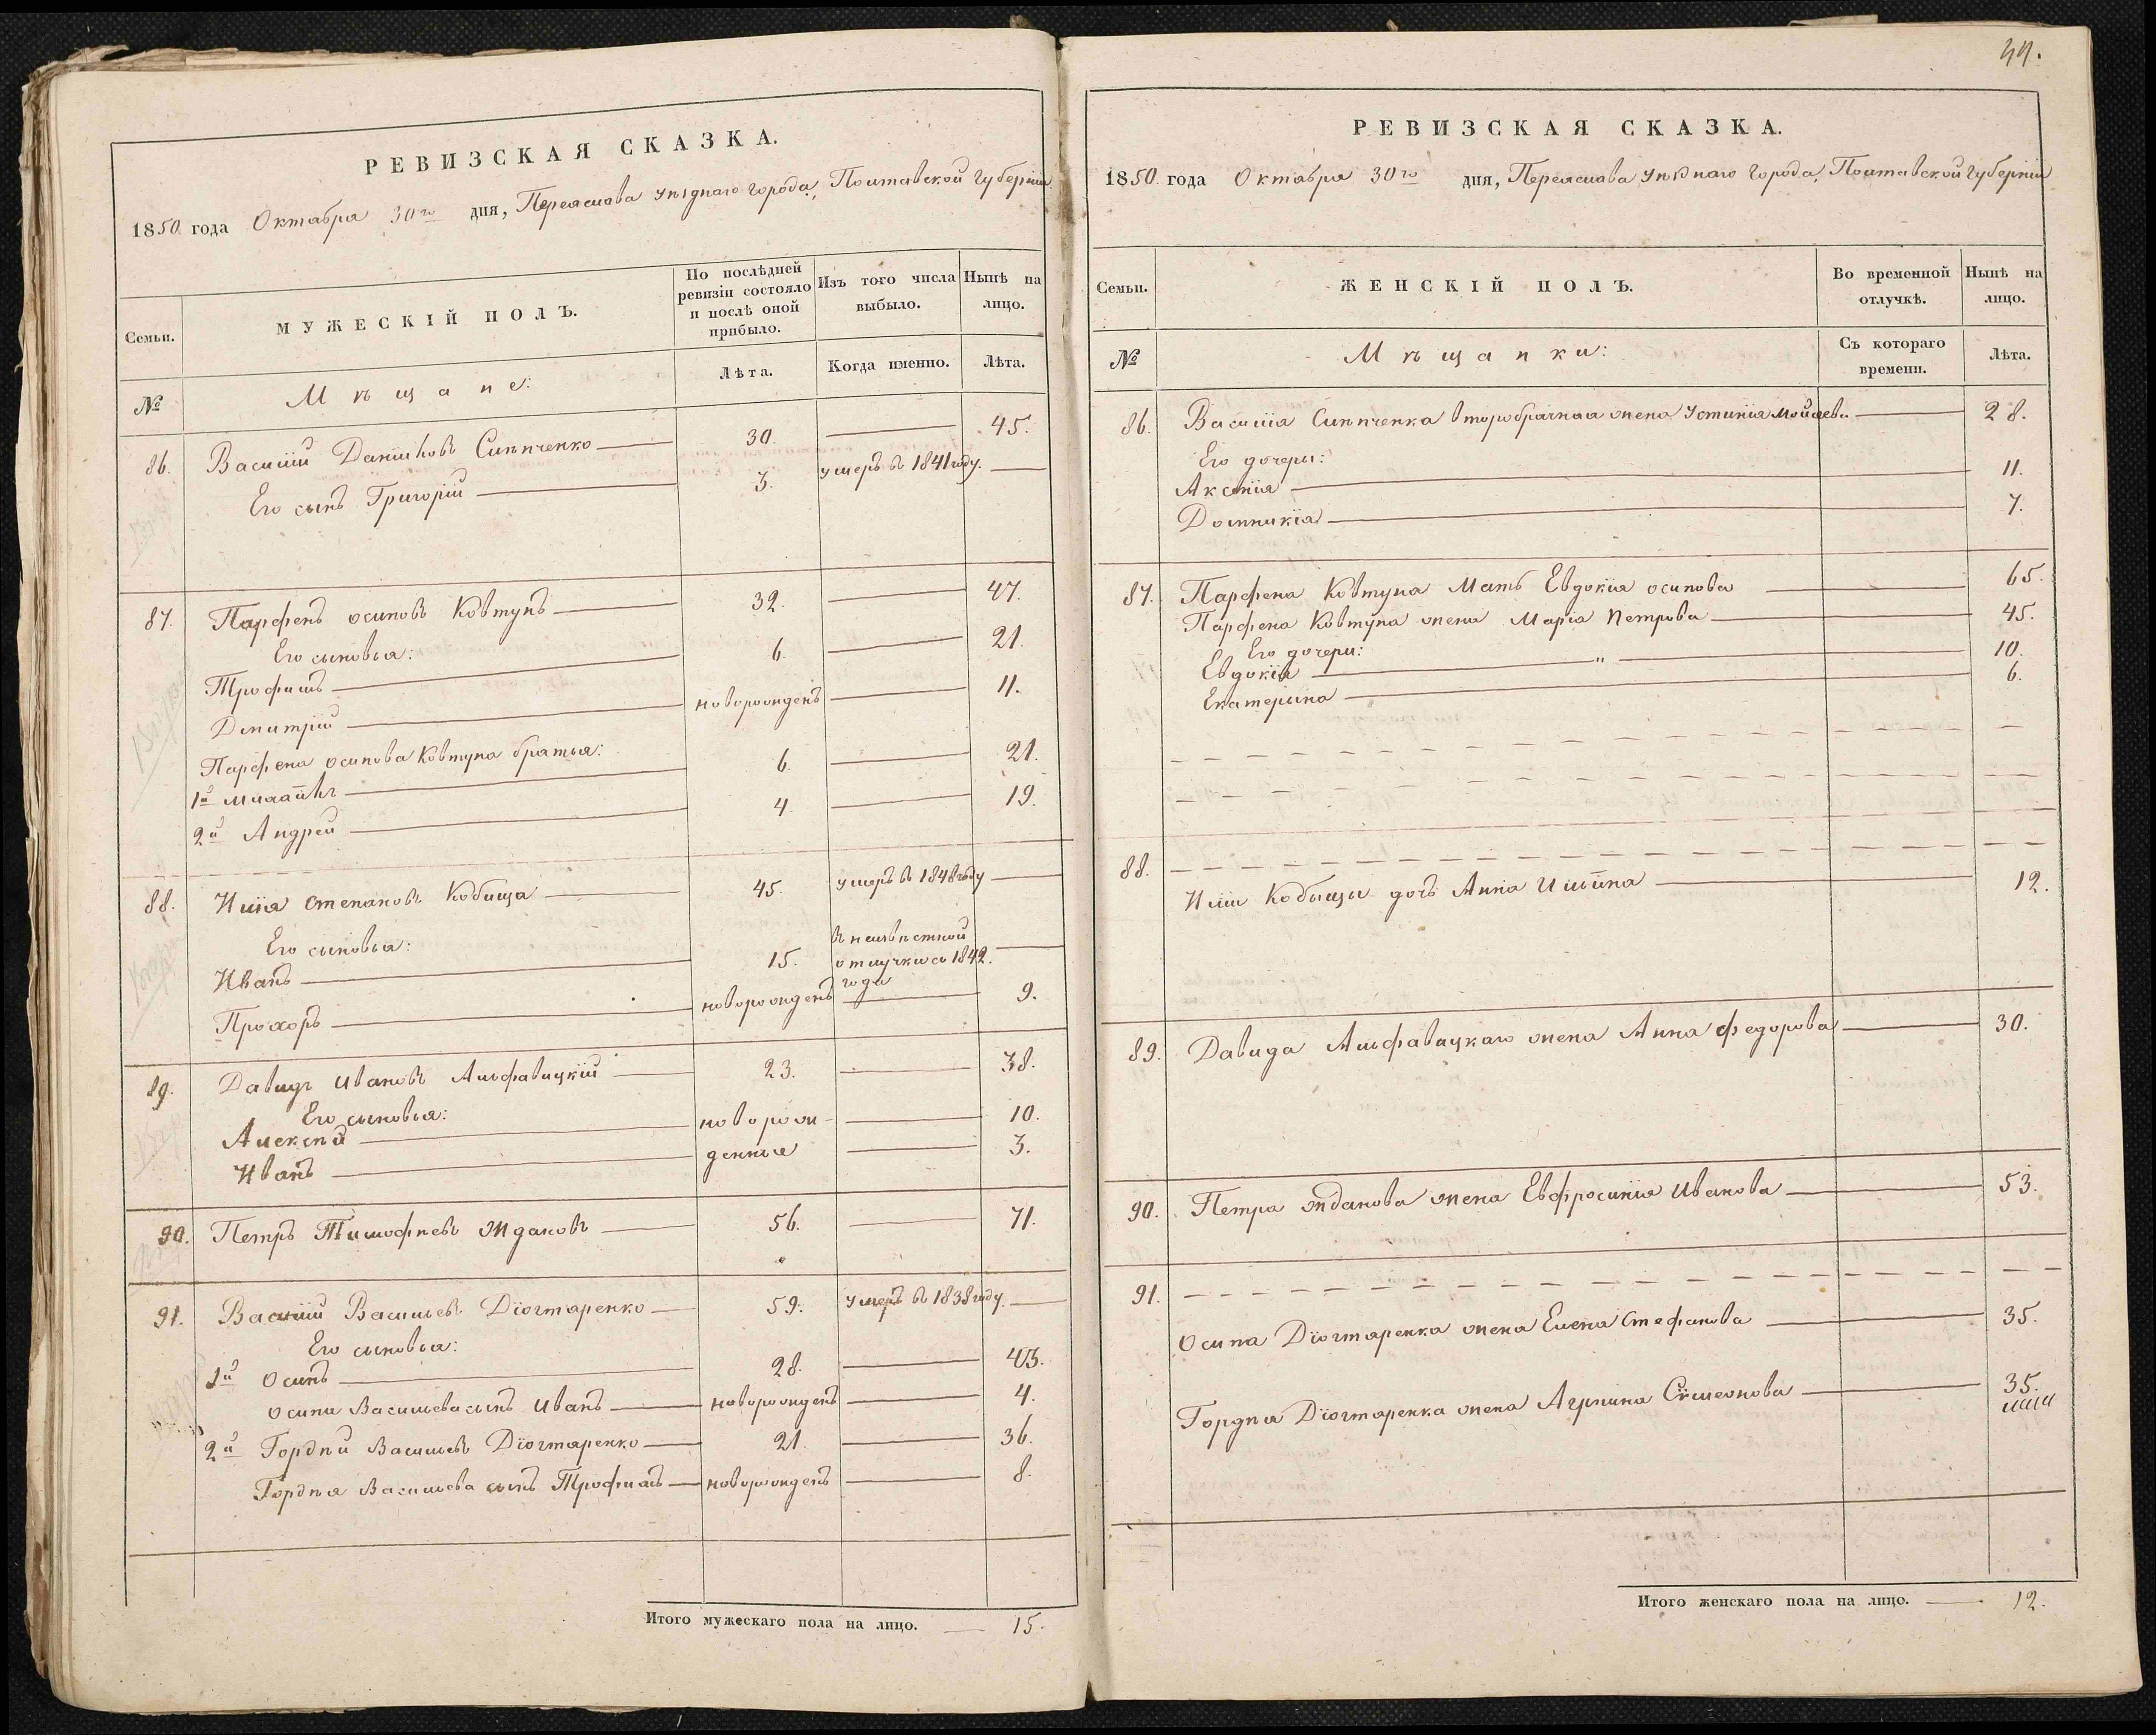 РЕВИЗСКАЯ СКАЗКА.
1850 года Октября 30го дня, Переяслава уѣзднаго города, Полтавской губерніи
Семьи.
МУЖЕСКІЙ ПОЛЪ.
По послѣдней ревизіи состояло и послѣ оной прибыло.
Изъ того числа выбыло.
Нынѣ на лицо.
№
Мѣщане:
Лѣта.
Когда именно.
Лѣта.
86. Василій Даниловъ Синпченко 30. 45.
Его сынъ Григорій 3. умеръ въ 1841 году.
87. Парфенъ Осиповъ Ковтунъ 32. 47.
Его сыновья:
Трофимъ 6. 21.
Дмитрій новорожденъ 11.
Парфена Осипова Ковтуна братья:
1й 6. 21.
2й Андрей 4. 19.
88. Илія Степановъ Кобища 45. умеръ въ 1848 году
Его сыновья:
Иванъ 15. въ неизвѣстной отлучкѣ съ 1842. года
Прохоръ новорожденъ 9.
89. Давидъ Ивановъ Альфавицкій 23. 38.
Его сыновья:
Алексѣй новорож- 10.
Иванъ денные 3.
90. Петръ Тимофѣевъ Ждановъ 56. 71.
91. Василій Васильевъ Дігтаренко 59. умеръ въ 1838 году.
Его сыновья:
1й Осипъ 28. 43.
Осипа Васильева сынъ Иванъ новорожденъ 4.
2й Гордѣй Васильевъ Дігтаренко 21. 36.
Гордѣя Васильева сынъ Трофимъ новорожденъ 8.
Итого мужескаго пола на лицо. 15.
44.
РЕВИЗСКАЯ СКАЗКА.
1850 года Октября 30го дня, Переяслава уѣзднаго города, Полтавской губерніи
Семьи.
ЖЕНСКІЙ ПОЛЪ.
Во временной отлучкѣ.
Нынѣ на лицо.
№
Мѣщанки:
Съ котораго времени.
Лѣта.
86. Василія Синпченка второбрачная жена Устинія Моисеева 28.
Его дочери:
Аксенія 11.
Домникія 7.
87. Парфена Ковтуна мать Евдокія Осипова 65.
Парфена Ковтуна жена Марія Петрова 45.
Его дочери:
Евдокія " 10.
Екатерина 6.
88.
Иліи Кобищы дочь Анна Ильина 12.
89. Давида Альфавицкаго жена Анна Федорова 30.
90. Петра Жданова жена Евфросинія Иванова 53.
91.
Осипа Дігтаренка жена Елена Стефанова 35.
Гордѣя Дігтаренка жена Агрипина Симеонова 35.
Итого женскаго пола на лицо. 12.